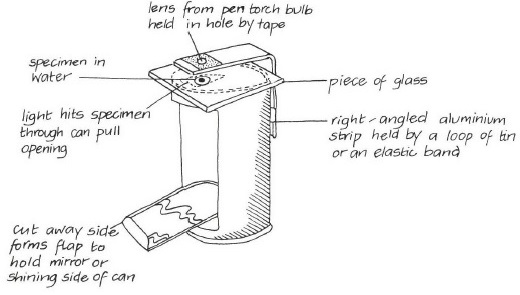 lens from pen torch bulb
held in hole by tape
specimen in
water
piece of glass
light hits specimen
through can pull
opening
right-angled aluminium
strip held by a loop of tin
or an elastic band
cut away side
forms flap to
hold mirror or
shining side of can